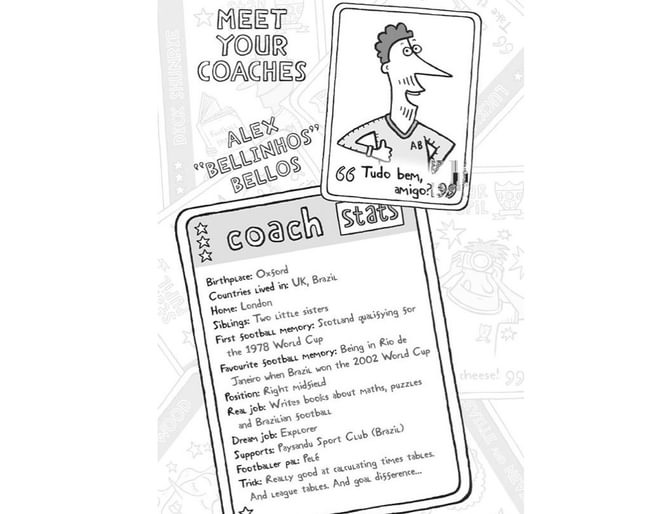 MEET
YOUR
COACHES
ALEX
"BELLINHOS"
BELLOS
AB
66 Tudo bem,
amigo? 99
coach stats
Birthplace: Oxford
Countries lived in: UK, Brazil
Home: London
Siblings: Two little sisters
First football memory: Scotland qualifying for
the 1978 World Cup
Favourite football memory: Being in Rio de
Janeiro when Brazil won the 2002 World Cup
Position: Right midfield
Real job: Writes books about maths, puzzles
and Brazilian football
Dream job: Explorer
Supports: Paysandu Sport Club (Brazil)
Footballer pal: Pelé
Trick: Really good at calculating times tables.
And league tables. And goal difference...
DICK SHUNBIE
cheese! 99